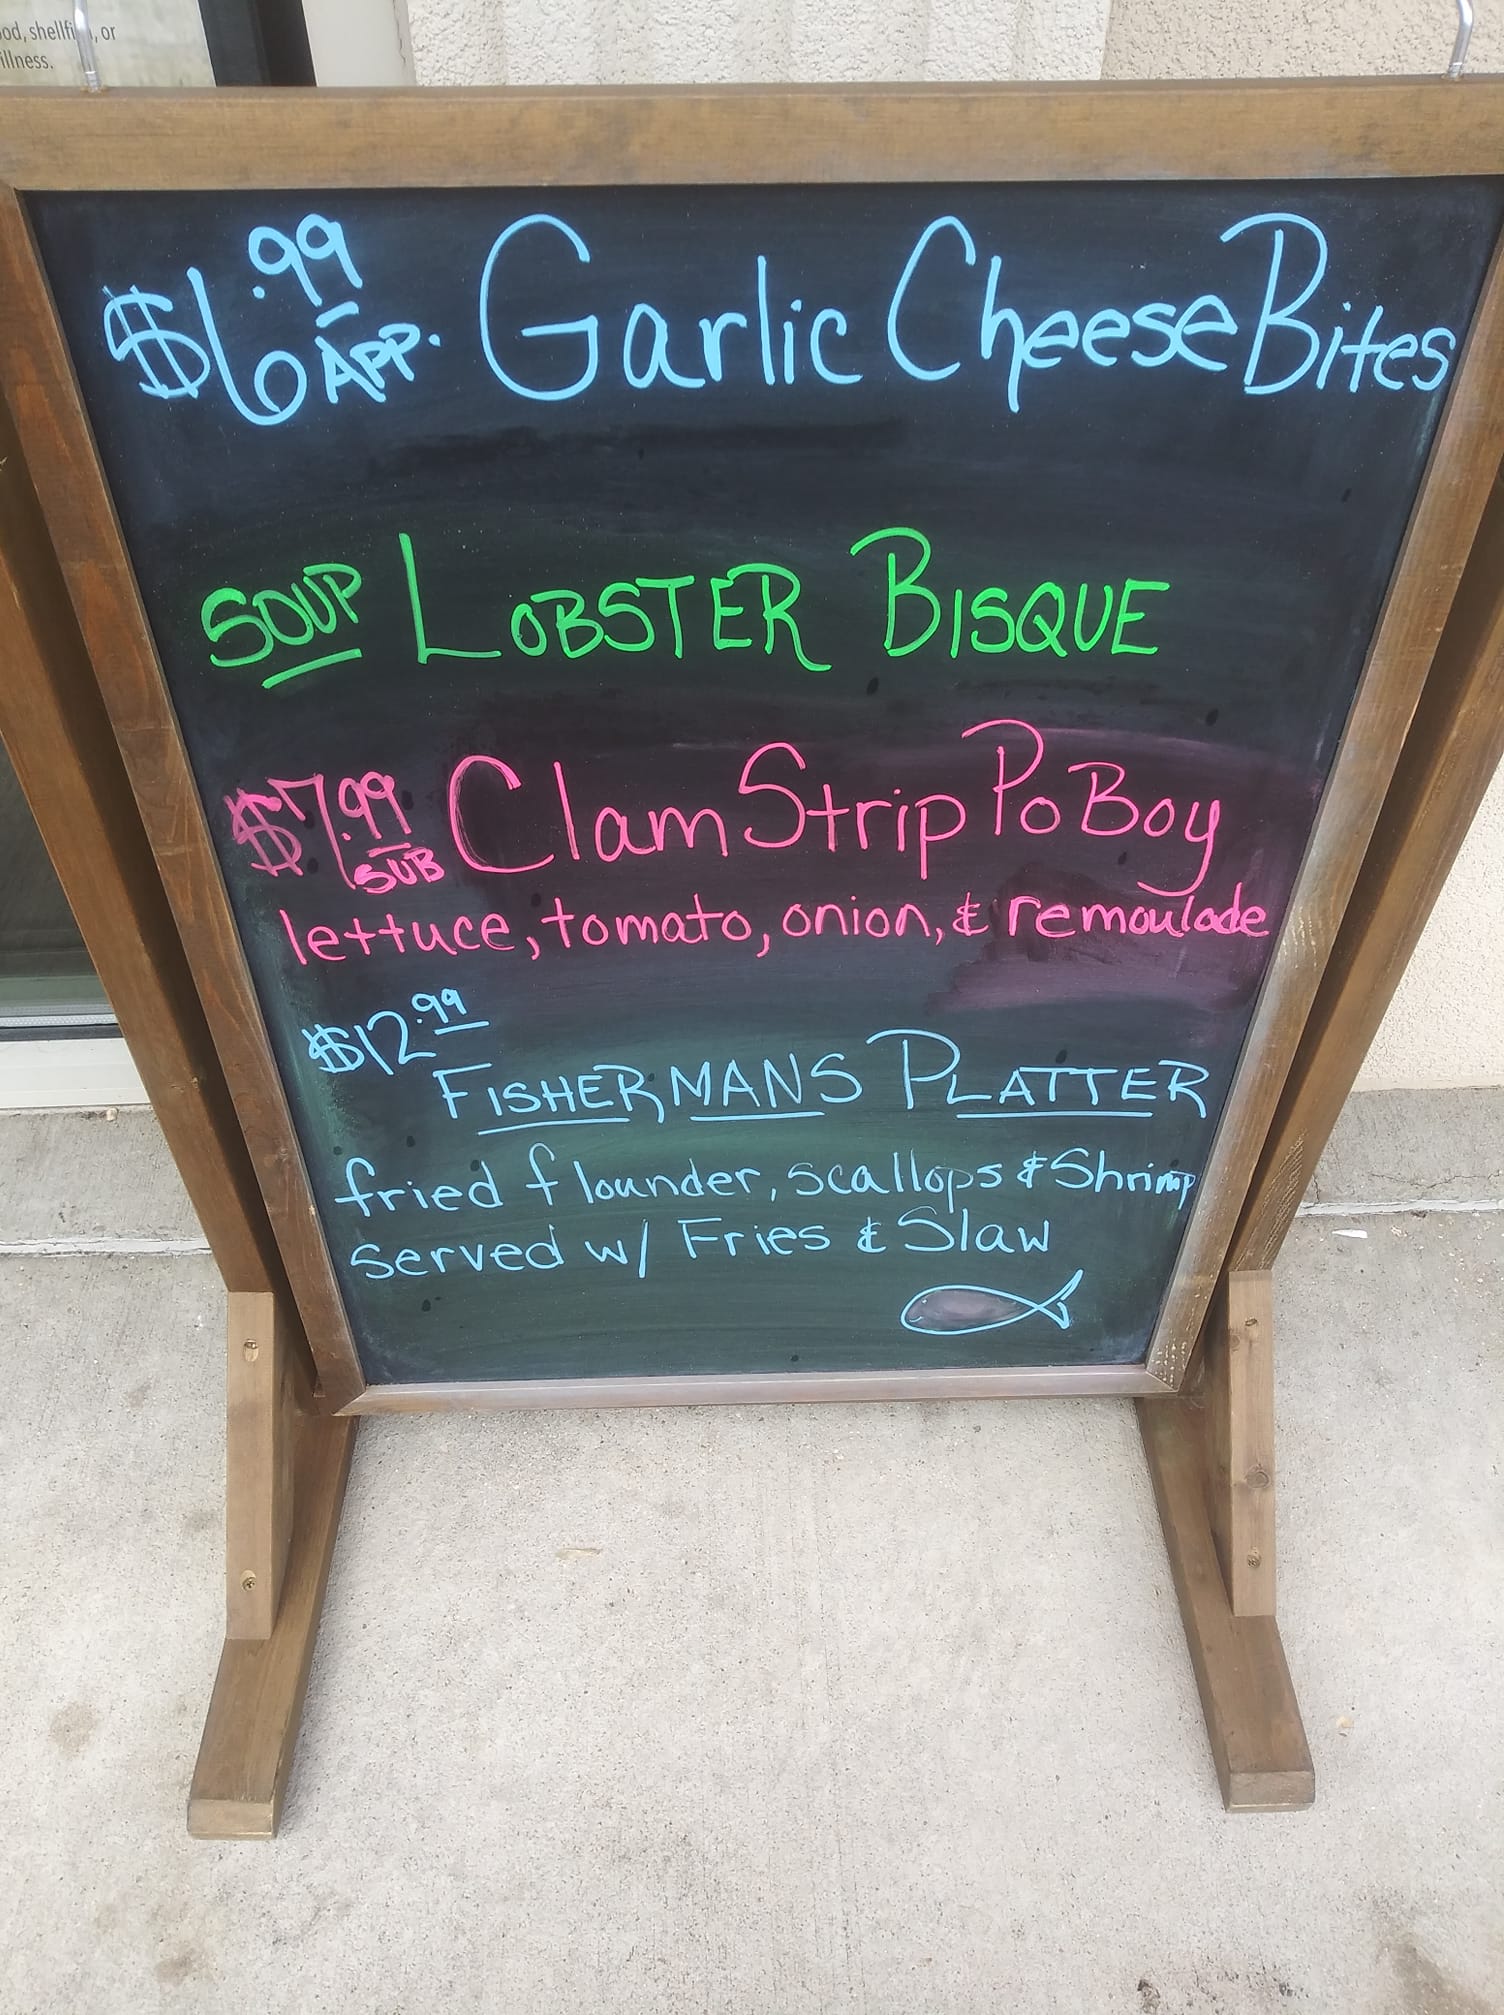 od, shellfi , or
illness.
$6.99 APP. Garlic Cheese Bites
SOUP LOBSTER BISQUE
$7.99 SUB Clam Strip Po Boy
lettuce, tomato, onion, & remoulade
$12.99
FISHERMANS PLATTER
fried flounder, scallops & Shrimp
served w/ Fries & Slaw